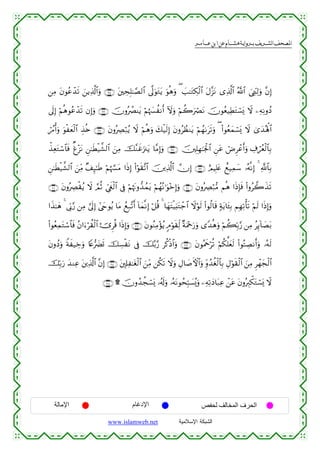 المصحف الشريف برواية هشام عن ابن عامر
إِنَّ وَلِـِّۧىَ ٱللَّهُ ٱلَّذِى نَزَّلَ ٱلْكِتَـٰبَ ۖ وَهُوَ يَتَوَلَّى ٱلصَّـٰلِحِينَ وَٱلَّذِينَ تَدْعُونَ مِن
دُونِهِۦ لَا يَسْتَطِيعُونَ نَصْرَكُمْ وَلَآ أَنفُسَهُمْ يَنصُرُونَ وَإِن تَدْعُوهُمْ إِلَى
ٱلْهُدَىٰ لَا يَسْمَعُوا۟ ۖ وَتَرَىٰهُمْ يَنظُرُونَ إِلَيْكَ وَهُمْ لَا يُبْصِرُونَ خُذِ ٱلْعَفْوَ وَأْمُرْ
بِٱلْعُرْفِ وَأَعْرِضْ عَنِ ٱلْجَـٰهِلِينَ وَإِمَّا يَنزَغَنَّكَ مِنَ ٱلشَّيْطَـٰنِ نَزْغٌ فَٱسْتَعِذْ
بِٱللَّهِ ۚ إِنَّهُۥ سَمِيعٌ عَلِيمٌ إِنَّ ٱلَّذِينَ ٱتَّقَوْا۟ إِذَا مَسَّهُمْ طَـٰٓئِفٌ مِّنَ ٱلشَّيْطَـٰنِ
تَذَكَّرُوا۟ فَإِذَا هُم مُّبْصِرُونَ وَإِخْوَٰنُهُمْ يَمُدُّونَهُمْ فِى ٱلْغَىِّ ثُمَّ لَا يُقْصِرُونَ
وَإِذَا لَمْ تَأْتِهِم بِـَٔايَةٍ قَالُوا۟ لَوْلَا ٱجْتَبَيْتَهَا ۚ قُلْ إِنَّمَآ أَتَّبِعُ مَا يُوحَىٰٓ إِلَىَّ مِن رَّبِّى ۚ هَـٰذَا
بَصَآئِرُ مِن رَّبِّكُمْ وَهُدًى وَرَحْمَةٌ لِّقَوْمٍ يُؤْمِنُونَ وَإِذَا قُرِئَ ٱلْقُرْءَانُ فَٱسْتَمِعُوا۟
لَهُۥ وَأَنصِتُوا۟ لَعَلَّكُمْ تُرْحَمُونَ وَٱذْكُر رَّبَّكَ فِى نَفْسِكَ تَضَرُّعًا وَخِيفَةً وَدُونَ
ٱلْجَهْرِ مِنَ ٱلْقَوْلِ بِٱلْغُدُوِّ وَٱلْـَٔاصَالِ وَلَا تَكُن مِّنَ ٱلْغَـٰفِلِينَ إِنَّ ٱلَّذِينَ عِندَ رَبِّكَ
لَا يَسْتَكْبِرُونَ عَنْ عِبَادَتِهِۦ وَيُسَبِّحُونَهُۥ وَلَهُۥ يَسْجُدُونَ ۩
الحرف المخالف لحفص الإدغام الإمالة
الشبكة الإسلامية www.islamweb.net